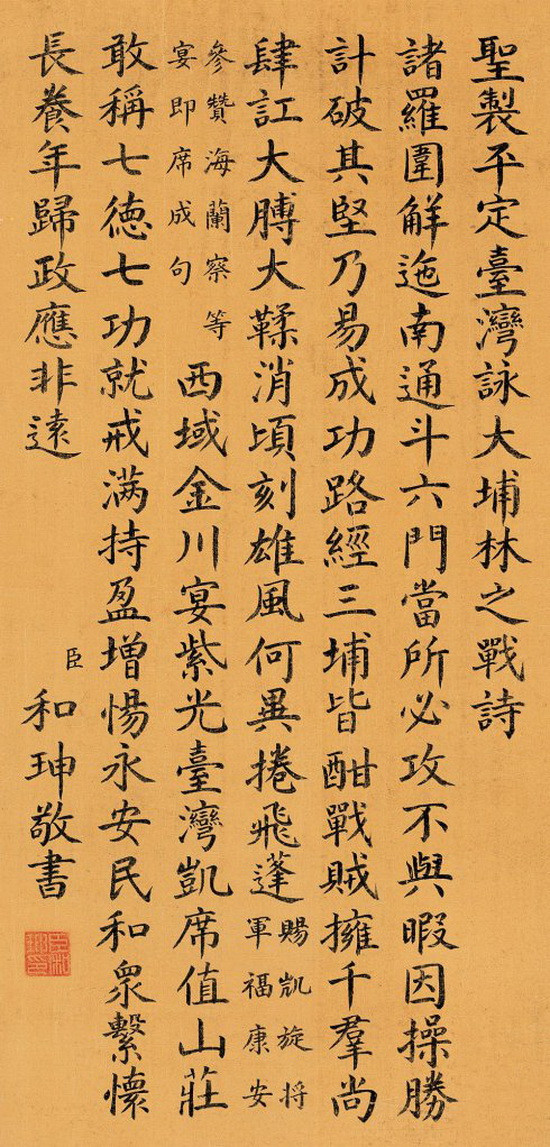 聖製平定臺灣詠大埔林之戰詩
諸羅圍解迤南通斗六門當所必攻不與暇因操勝
計破其堅乃易成功路經三埔皆酣戰賊擁千羣尚
肆訌大膊大鞣消頃刻雄風何異捲飛蓬
賜凱旋将
軍福康安
參贊海蘭察等
宴即席成句
西域金川宴紫光臺灣凱席值山莊
敢稱七德七功就戒满持盈增惕永安民和衆繫懷
長養年歸政應非遠
臣和珅敬書
臣和珅印